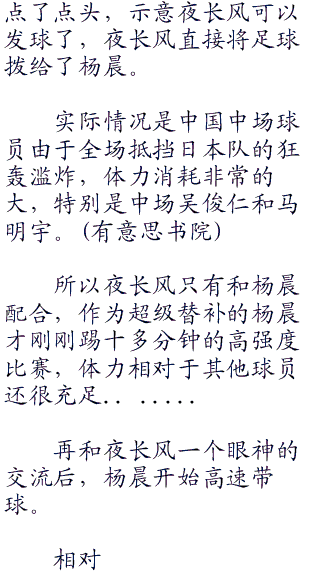 点了点头，示意夜长风可以
发球了，夜长风直接将足球
拨给了杨晨。
实际情况是中国中场球
员由于全场抵挡日本队的狂
轰滥炸，体力消耗非常的
大，特别是中场吴俊仁和马
明宇。(有意思书院)
所以夜长风只有和杨晨
配合，作为超级替补的杨晨
才刚刚踢十多分钟的高强度
比赛，体力相对于其他球员
还很充足．．．．．．．
再和夜长风一个眼神的
交流后，杨晨开始高速带
球。
相对